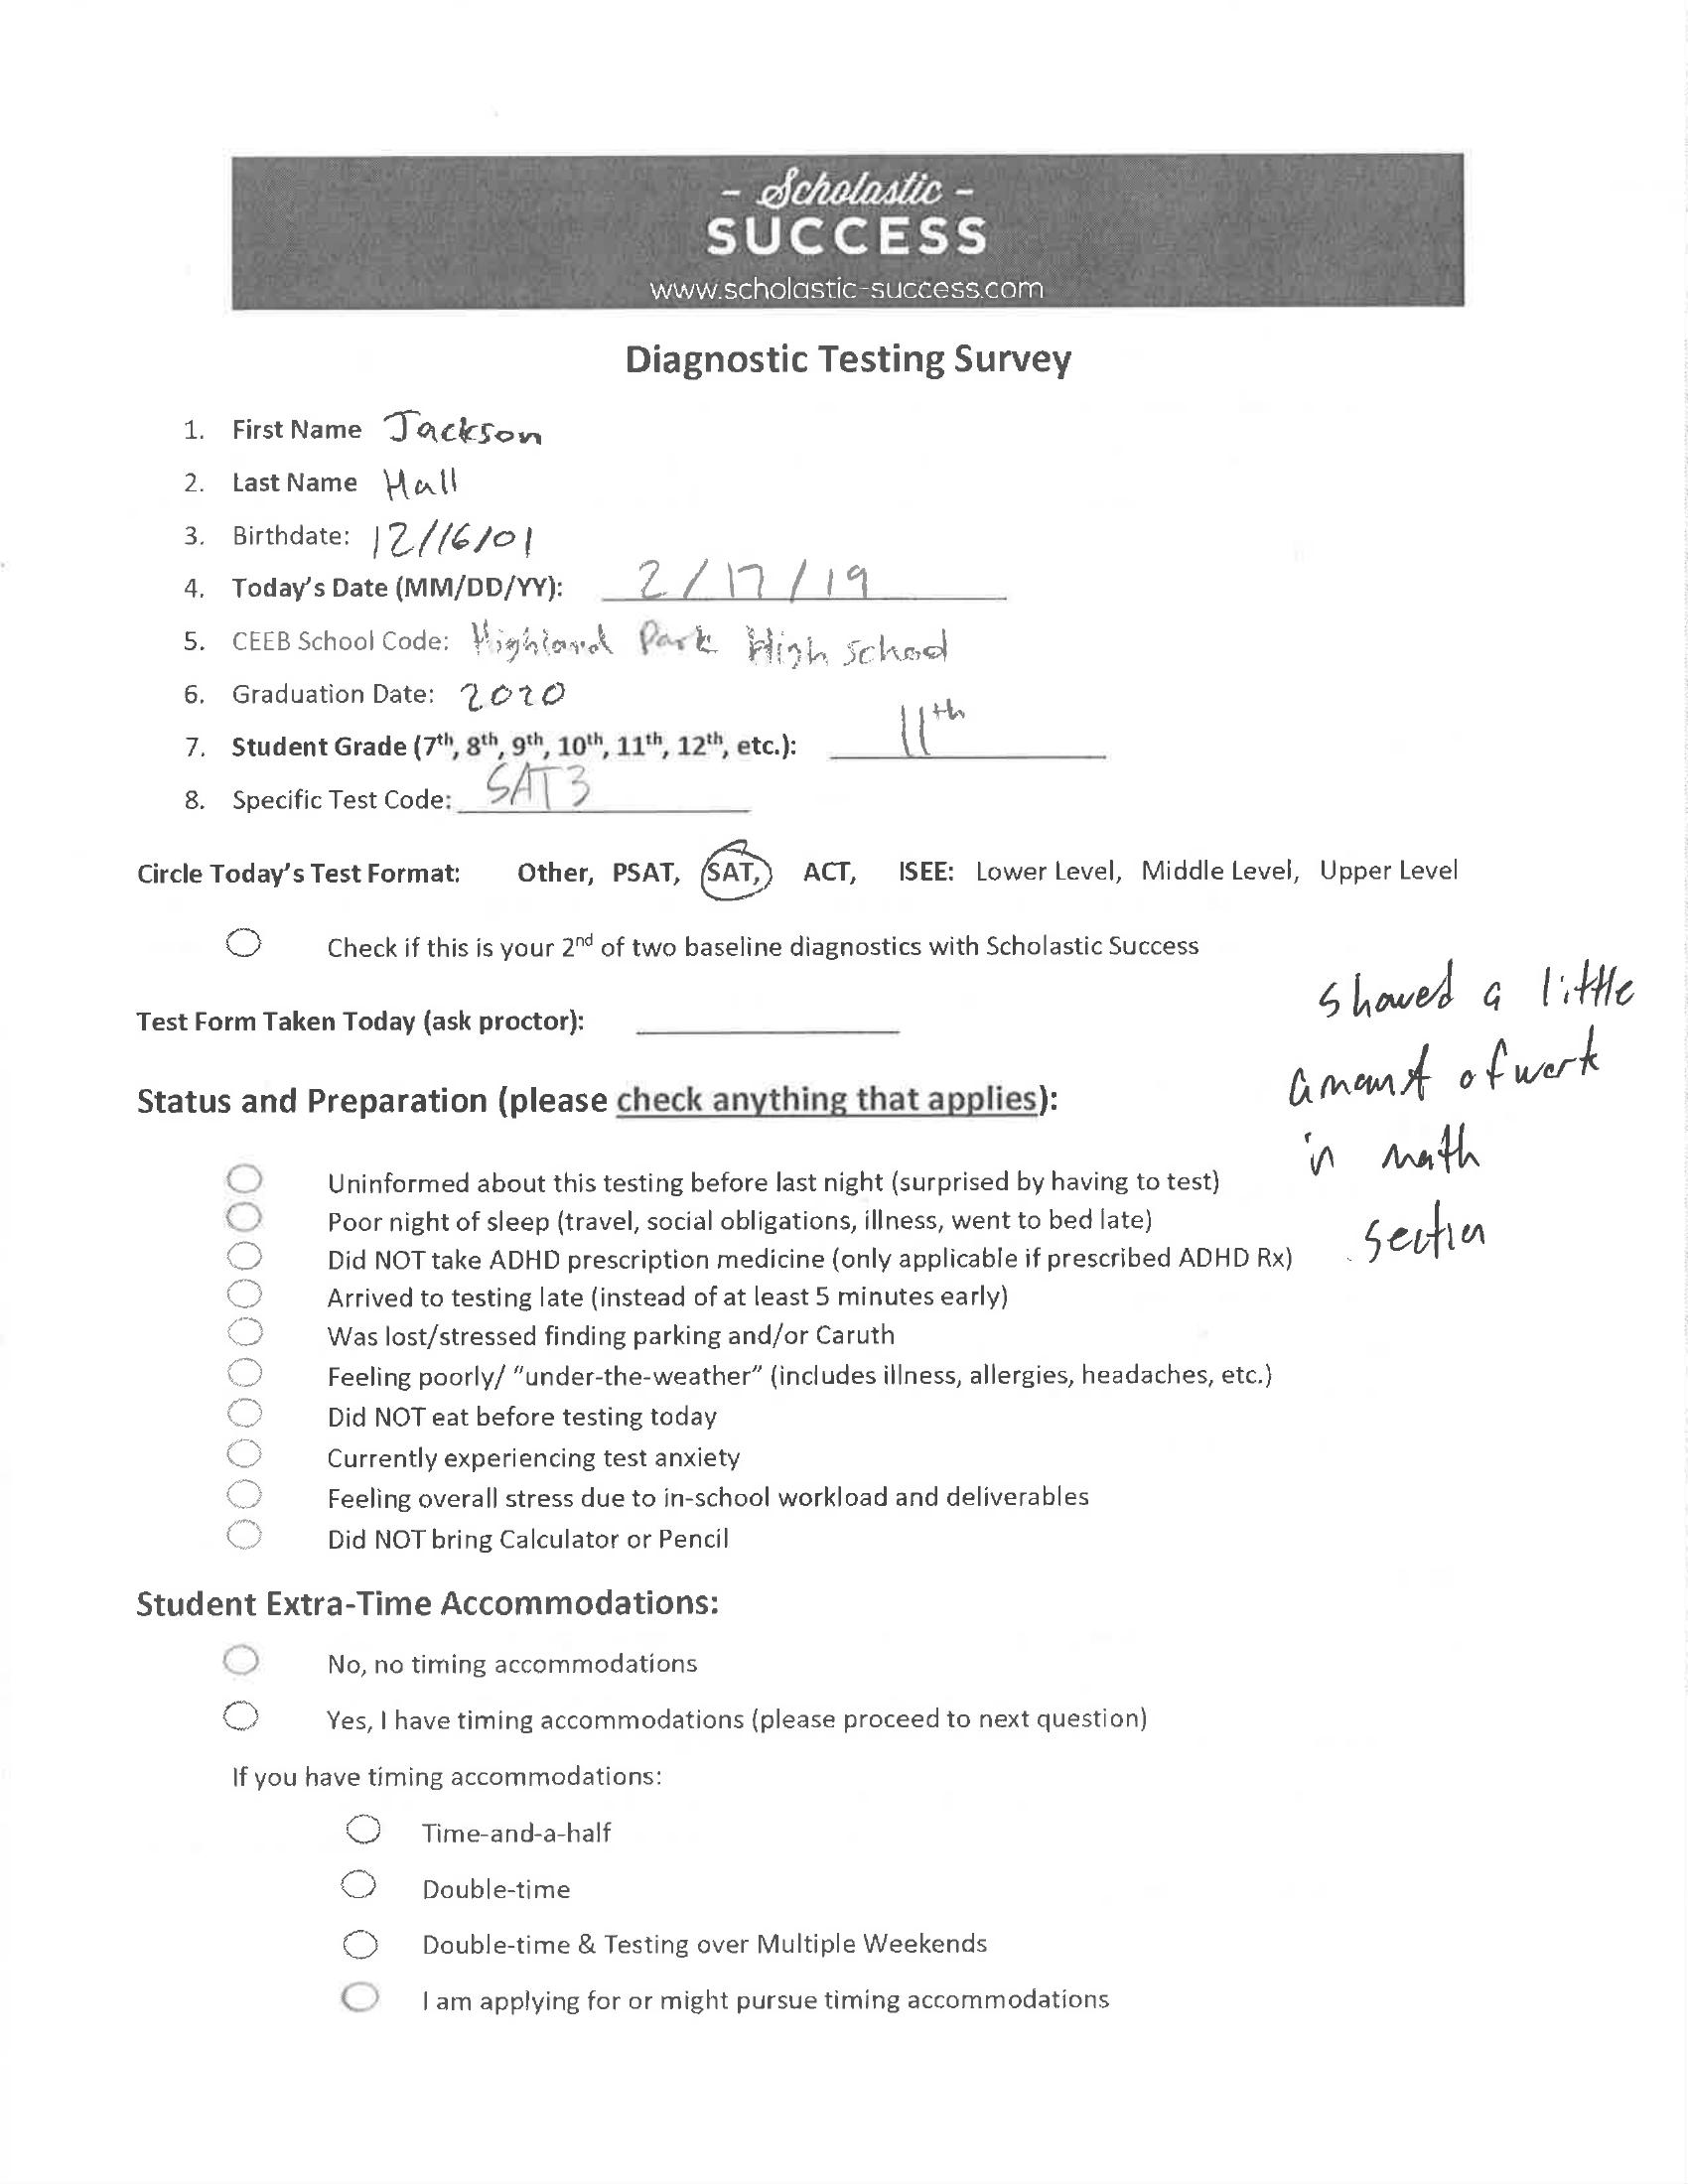 - Scholastic -
SUCCESS
www.scholastic-success.com
Diagnostic Testing Survey
1. First Name Jackson
2. Last Name Hall
3. Birthdate: 12/16/01
4. Today's Date (MM/DD/YY): 2/17/19
5. CEEB School Code: Highland Park High School
6. Graduation Date: 2020
7. Student Grade (7th, 8th, 9th, 10th, 11th, 12th, etc.): 11th
8. Specific Test Code: SAT3
Circle Today's Test Format: Other, PSAT, SAT, ACT, ISEE: Lower Level, Middle Level, Upper Level
Check if this is your 2nd of two baseline diagnostics with Scholastic Success
Test Form Taken Today (ask proctor):
showed a little
amount of work
in math
section
Status and Preparation (please check anything that applies):
Uninformed about this testing before last night (surprised by having to test)
Poor night of sleep (travel, social obligations, illness, went to bed late)
Did NOT take ADHD prescription medicine (only applicable if prescribed ADHD Rx)
Arrived to testing late (instead of at least 5 minutes early)
Was lost/stressed finding parking and/or Caruth
Feeling poorly/ "under-the-weather" (includes illness, allergies, headaches, etc.)
Did NOT eat before testing today
Currently experiencing test anxiety
Feeling overall stress due to in-school workload and deliverables
Did NOT bring Calculator or Pencil
Student Extra-Time Accommodations:
No, no timing accommodations
Yes, I have timing accommodations (please proceed to next question)
If you have timing accommodations:
Time-and-a-half
Double-time
Double-time & Testing over Multiple Weekends
I am applying for or might pursue timing accommodations